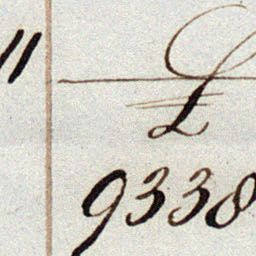 11 £
9338